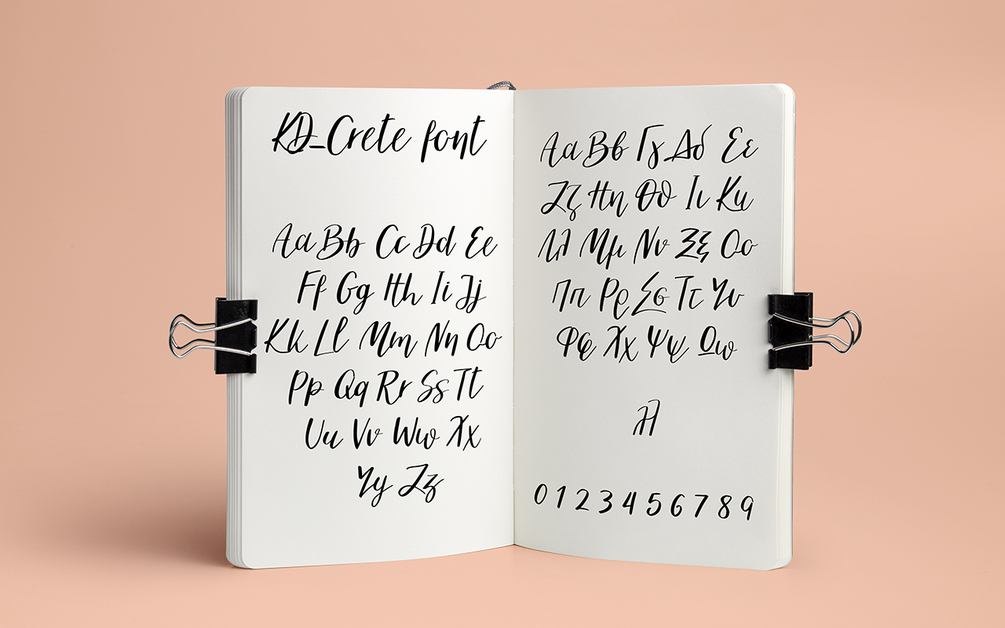 KD_Crete font
Aa Bb Cc Dd Ee
Ff Gg Hh Ii Jj
Kk Ll Mm Nn Oo
Pp Qq Rr Ss Tt
Uu Vv Ww Xx
Yy Zz
Αα Ββ Γγ Δδ Εε
Ζζ Ηη Θθ Ιι Κκ
Λλ Μμ Νν Ξξ Οο
Ππ Ρρ Σσ Ττ Υυ
Φφ Χχ Ψψ Ωω
0 1 2 3 4 5 6 7 8 9